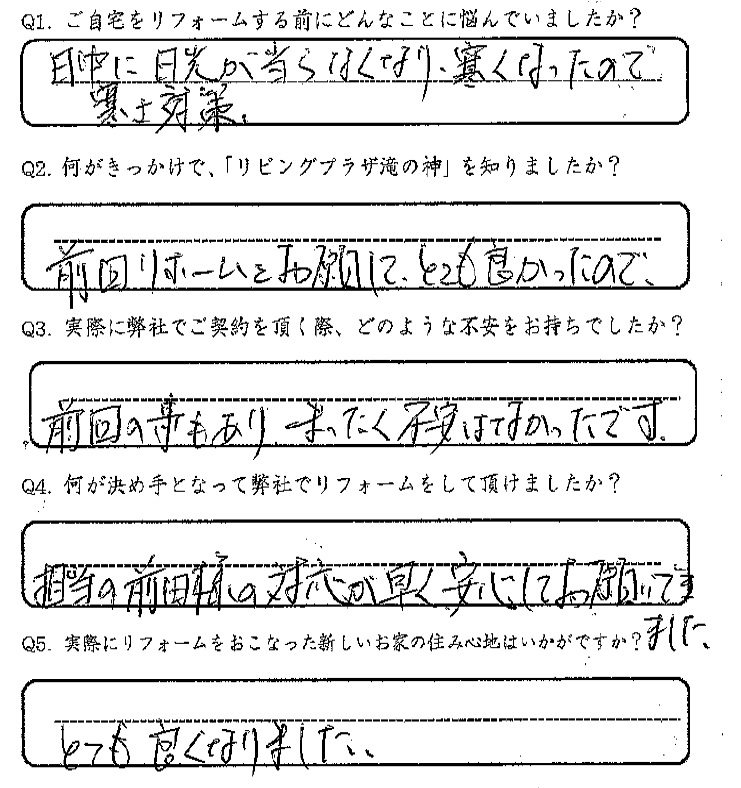 Q1. ご自宅をリフォームする前にどんなことに悩んでいましたか？
日中に日光が当らなくなり、寒くなったので
寒さ対策、
Q2. 何がきっかけで、「リビングプラザ滝の神」を知りましたか？
前回リホームをお願して、とても良かったので、
Q3. 実際に弊社でご契約を頂く際、どのような不安をお持ちでしたか？
前回の事もあり まったく不安はなかったです。
Q4. 何が決め手となって弊社でリフォームをして頂けましたか？
担当の前田様の対応が早く安心してお願いでき
ました、
Q5. 実際にリフォームをおこなった新しいお家の住み心地はいかがですか？
とても良くなりました、